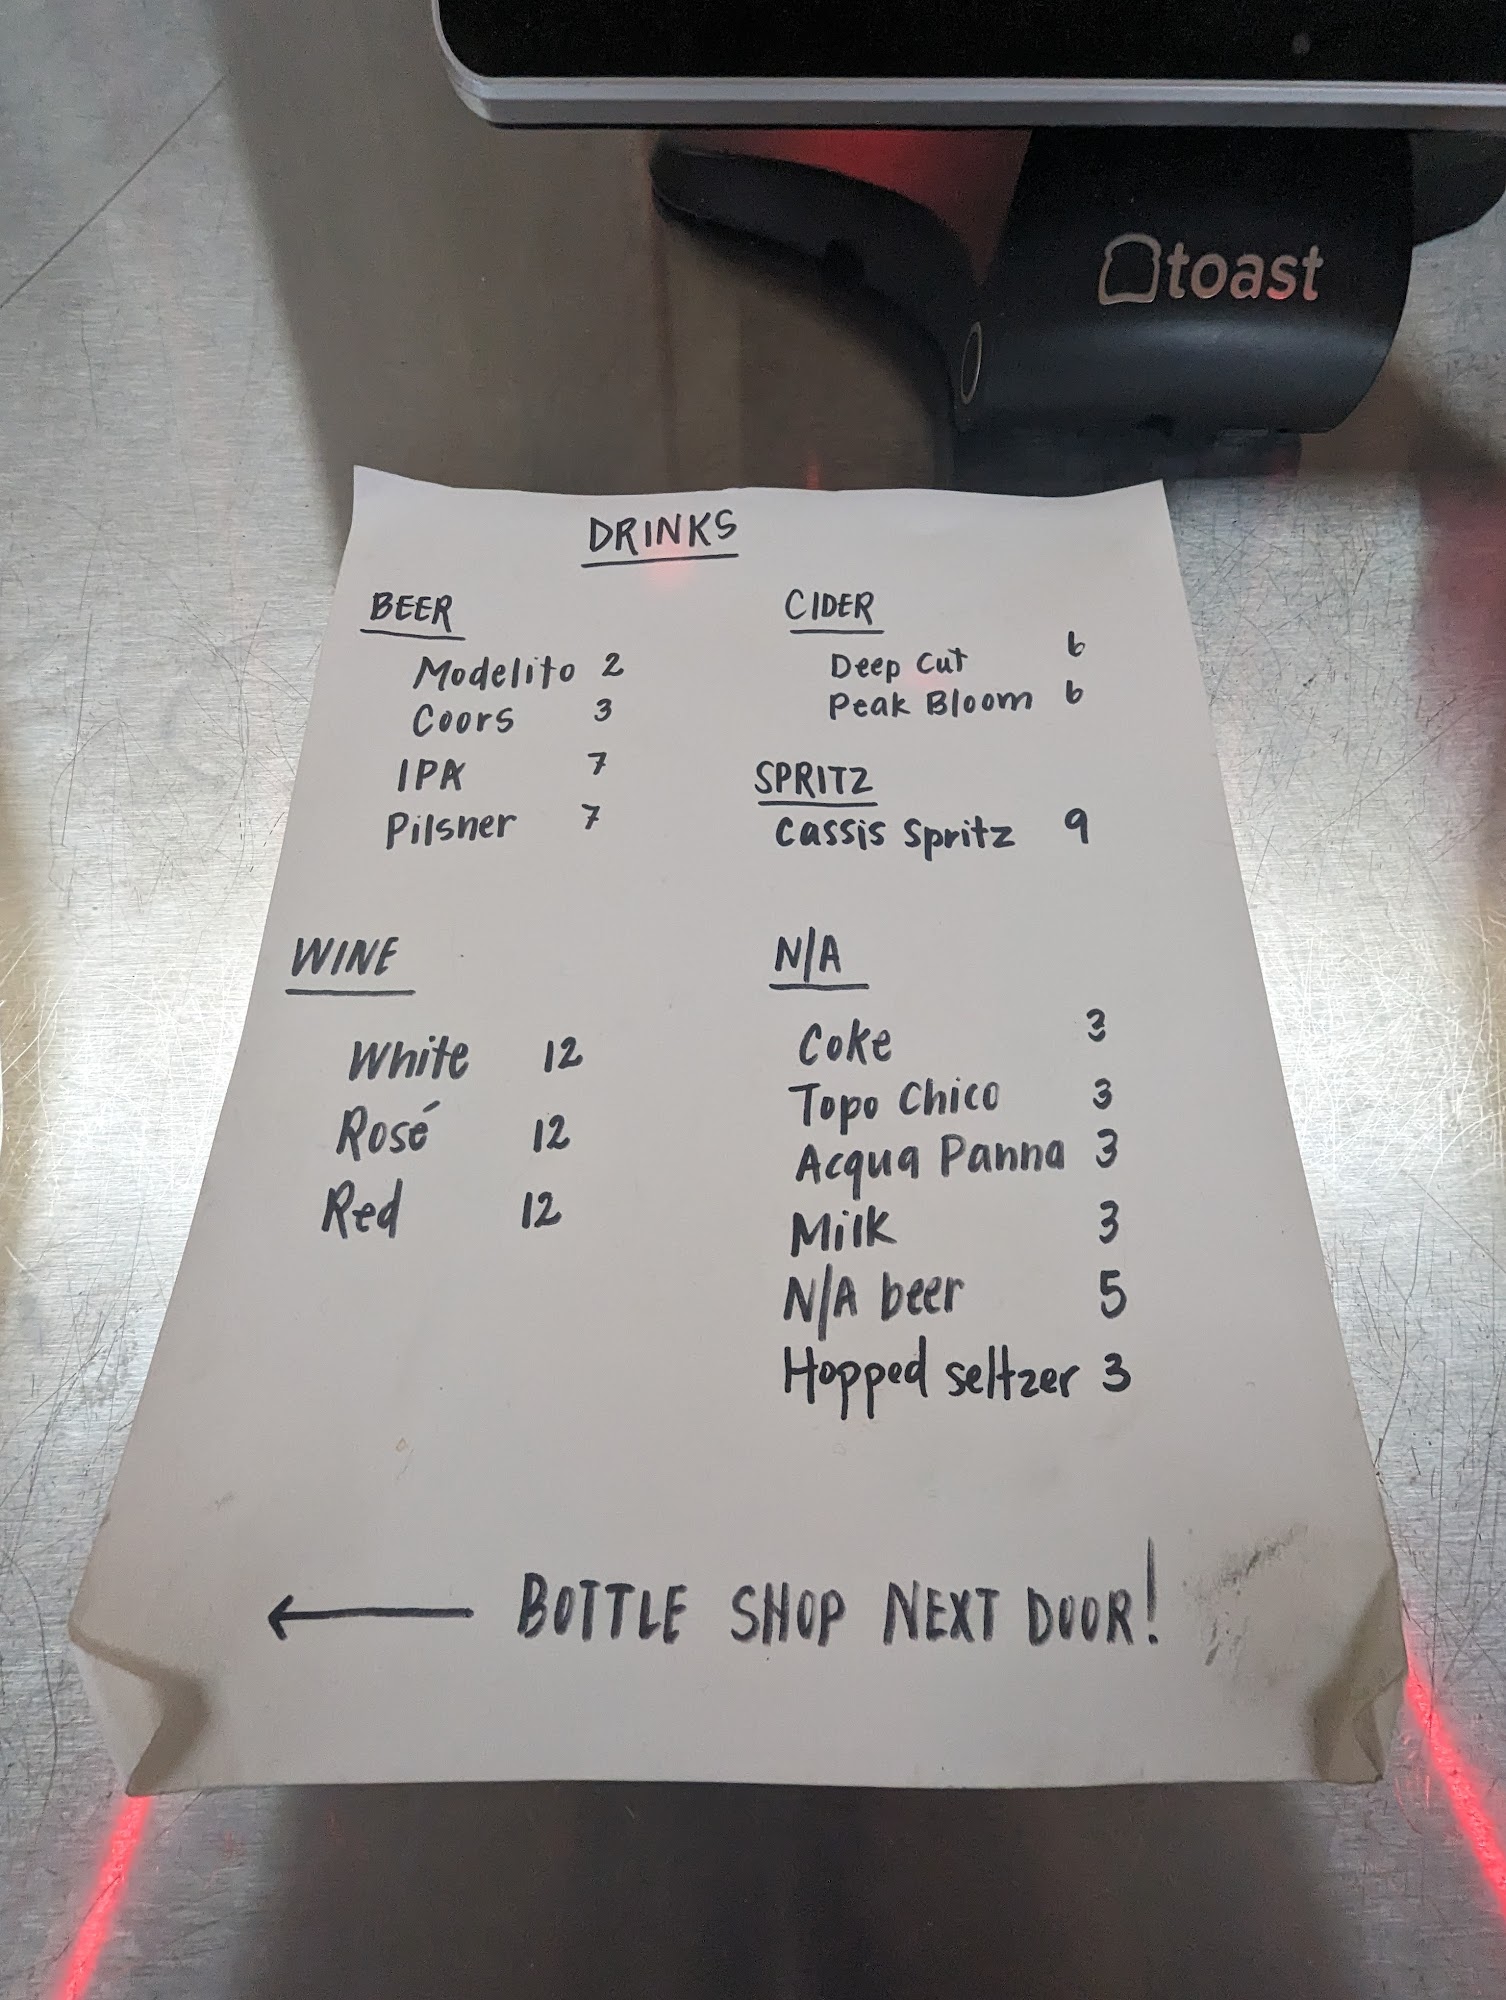 toast
DRINKS
BEER
Modelito 2
Coors 3
IPA 7
Pilsner 7
CIDER
Deep Cut 6
Peak Bloom 6
SPRITZ
Cassis Spritz 9
WINE
White 12
Rosé 12
Red 12
N/A
Coke 3
Topo Chico 3
Acqua Panna 3
Milk 3
N/A beer 5
Hopped seltzer 3
← BOTTLE SHOP NEXT DOOR!